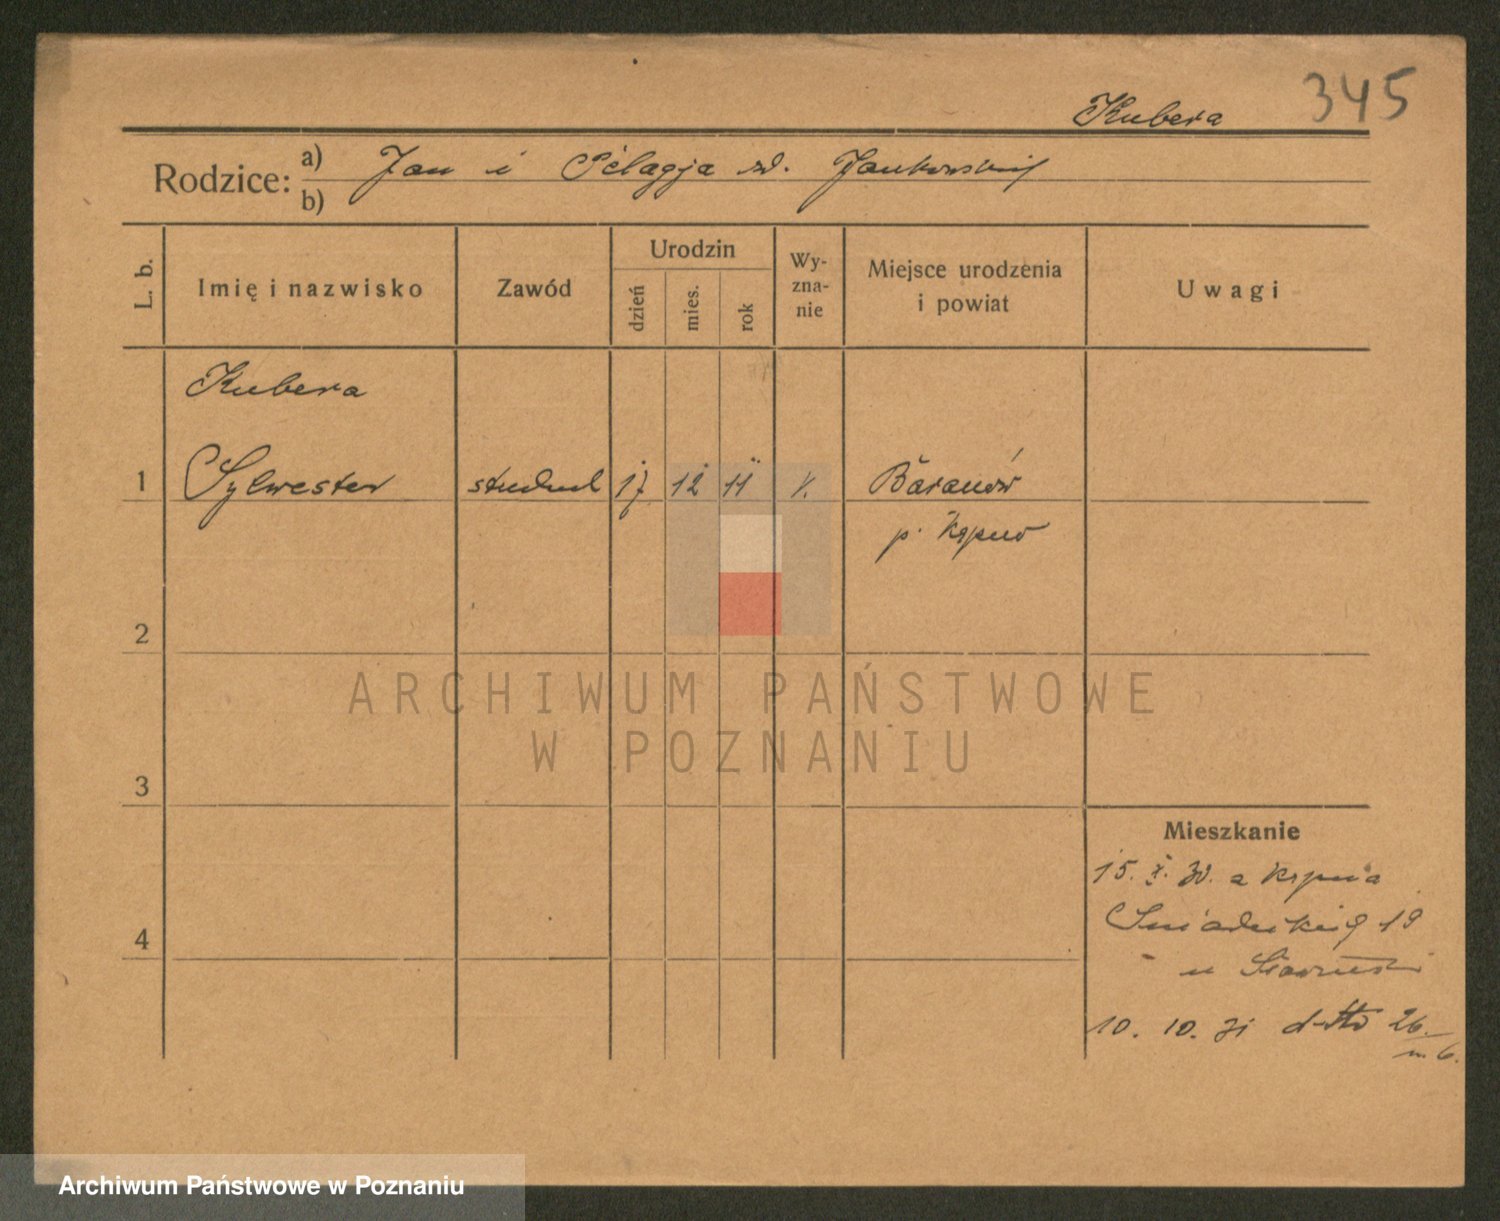 345
Kubera
Rodzice: a) Jan i Pelagja zd. Jankowskiej
b)
L. b. Imię i nazwisko Zawód Urodzin dzień mies. rok Wy-zna-nie Miejsce urodzenia i powiat Uwagi
Kubera
1 Sylwester student 17 12 11 k. Baranów
p. Kępno
2
ARCHIWUM PAŃSTWOWE
W POZNANIU
3
Mieszkanie
15. X. 30. z Kępna
Śniadeckich 19
4
u
10. 10. 31 d-tto 26
m. 6.
Archiwum Państwowe w Poznaniu